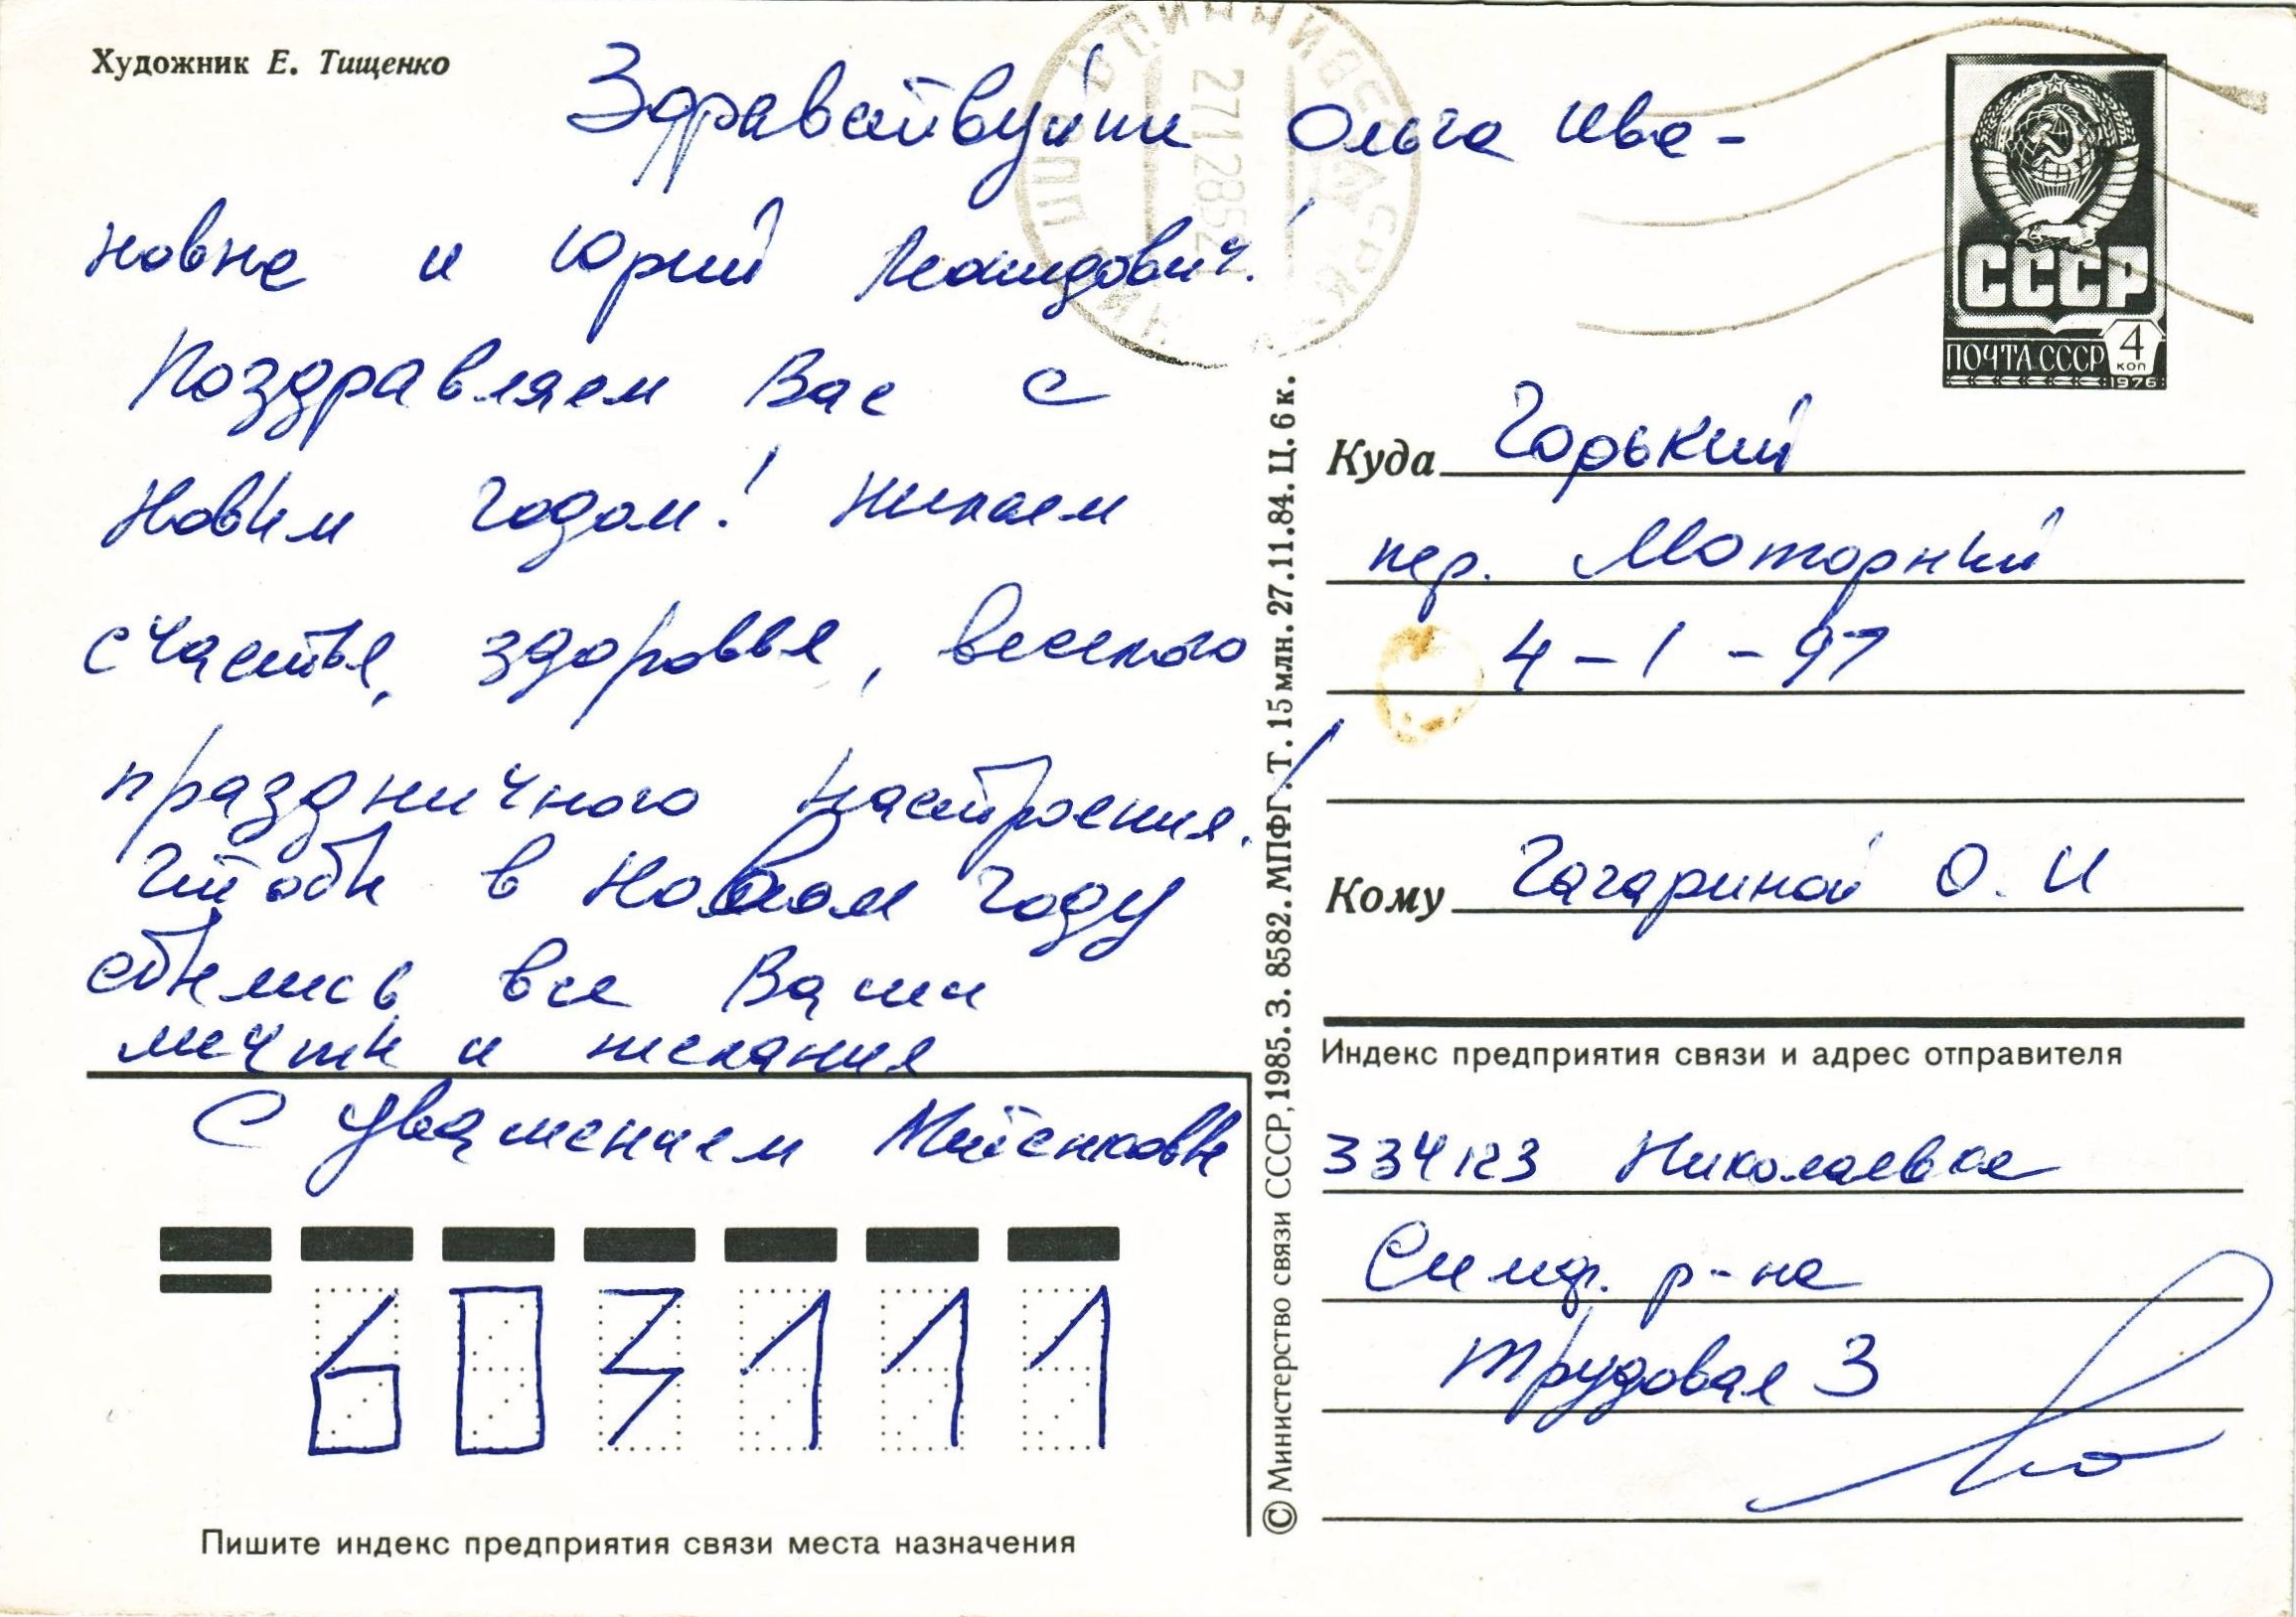 Художник Е. Тищенко
Здравствуйте Ольга Ива-
новна и Юрий Леонидович!
Поздравляем Вас с
Новым годом! Желаем
счастья, здоровья, веселого
праздничного настроения!
Чтобы в Новом году
сбылись все Ваши
мечты и желания
С уважением
Пишите индекс предприятия связи места назначения
603111
© Министерство связи СССР, 1985. З. 8582. МПФГ. Т. 15 млн. 27.11.84. Ц. 6 к.
271285
СССР
ПОЧТА СССР 4 коп
1976
Куда Горький
пер. Моторный
4 - 1 - 97
Кому Гагариной О. И
Индекс предприятия связи и адрес отправителя
334123 Николаевка
Симф. р-на
Трудовая 3